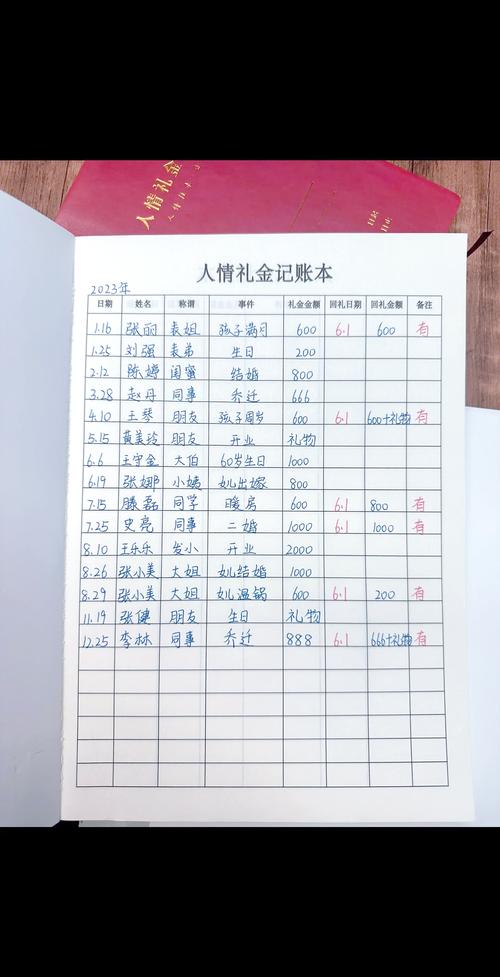 人情礼金
人情礼金记账本
2023年
日期 姓名 称谓 事件 礼金金额 回礼日期 回礼金额 备注
1.16 张丽 表姐 孩子满月 600 6.1 600 有
1.25 刘强 表弟 生日 200
2.12 陈婷 闺蜜 结婚 800
3.28 赵丹 同事 乔迁 666
4.10 王琴 朋友 孩子周岁 600 6.1 600+礼物 有
5.15 黄美玲 朋友 开业 礼物
6.6 王守金 大伯 60岁生日 1000
6.19 张娜 小姨 女儿出嫁 800
7.15 滕磊 同学 暖房 600 6.1 800 有
7.25 史亮 同事 二婚 1000 6.1 1000 有
8.10 王乐乐 发小 开业 2000
8.26 张小美 大姐 女儿结婚 1000
8.29 张小美 大姐 女儿温锅 600 6.1 200 有
11.19 张健 朋友 生日 礼物
12.25 李林 同事 乔迁 888 6.1 666+礼物 有